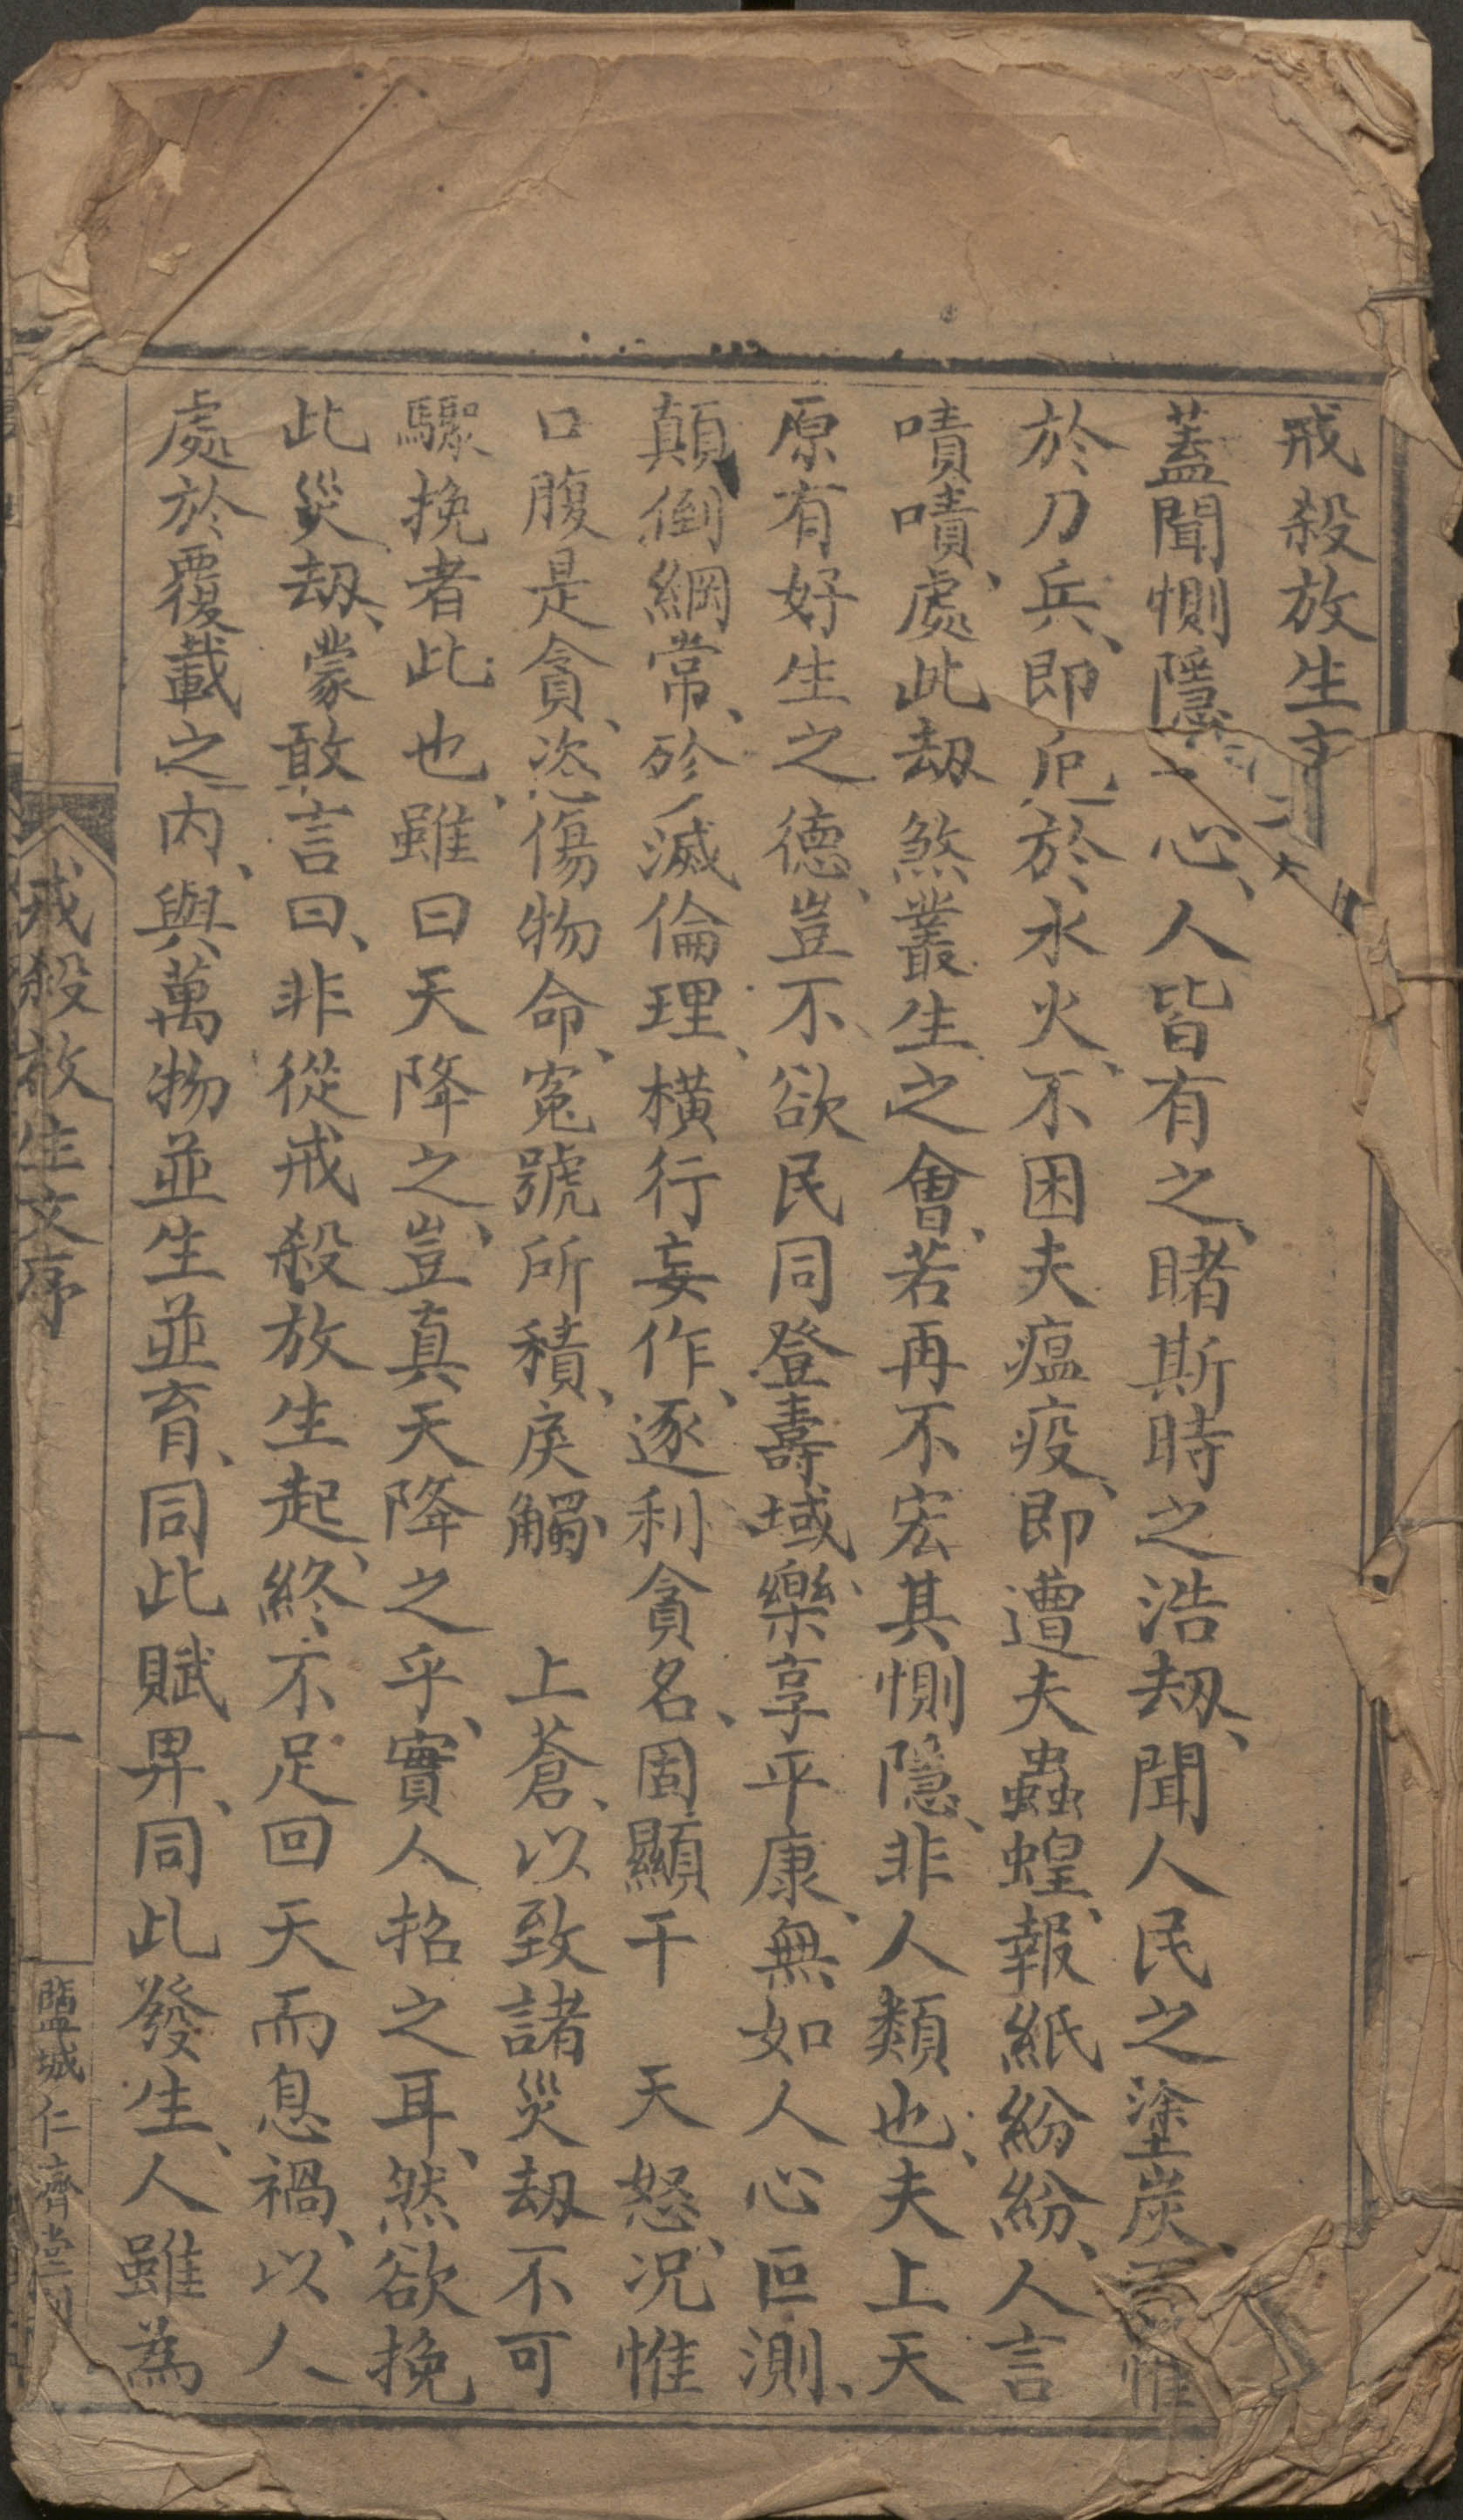 戒殺放生文
蓋聞惻隱之心、人皆有之、睹斯時之浩刼、聞人民之塗炭、惟
於刀兵、即厄於水火、不困夫瘟疫、即遭夫蟲蝗、報紙紛紛、人言
嘖嘖、處此刼煞叢生之會、若再不宏其惻隱、非人類也、夫上天
原有好生之德、豈不欲民同登壽域、樂享平康、無如人心叵測、
顛倒綱常、殄滅倫理、橫行妄作、逐利貪名、固顯干　天怒、况惟
口腹是貪、恣傷物命、冤號所積、戾觸　上蒼、以致諸災刼不可
驟挽者此也、雖曰天降之、豈真天降之乎、實人招之耳、然欲挽
此災刼、蒙敢言曰、非從戒殺放生起、終不足回天而息禍、以人
處於覆載之內、與萬物並生並育、同此賦畀、同此發生、人雖為
戒殺放生文序
一
鹽城仁濟堂刊